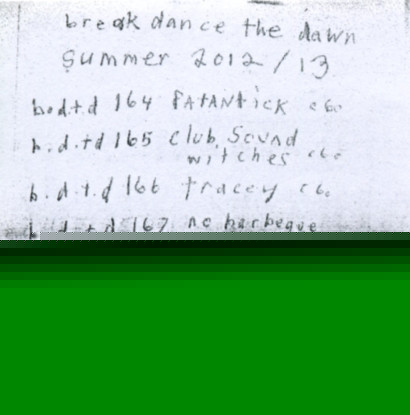 break dance the dawn
summer 2012/13
b.d.t.d 164 FATANTICK c60
b.d.td 165 Club. Sound
witches c60
b.d.t.d 166 tracey c60
b.d.t.d 167 no barbeque